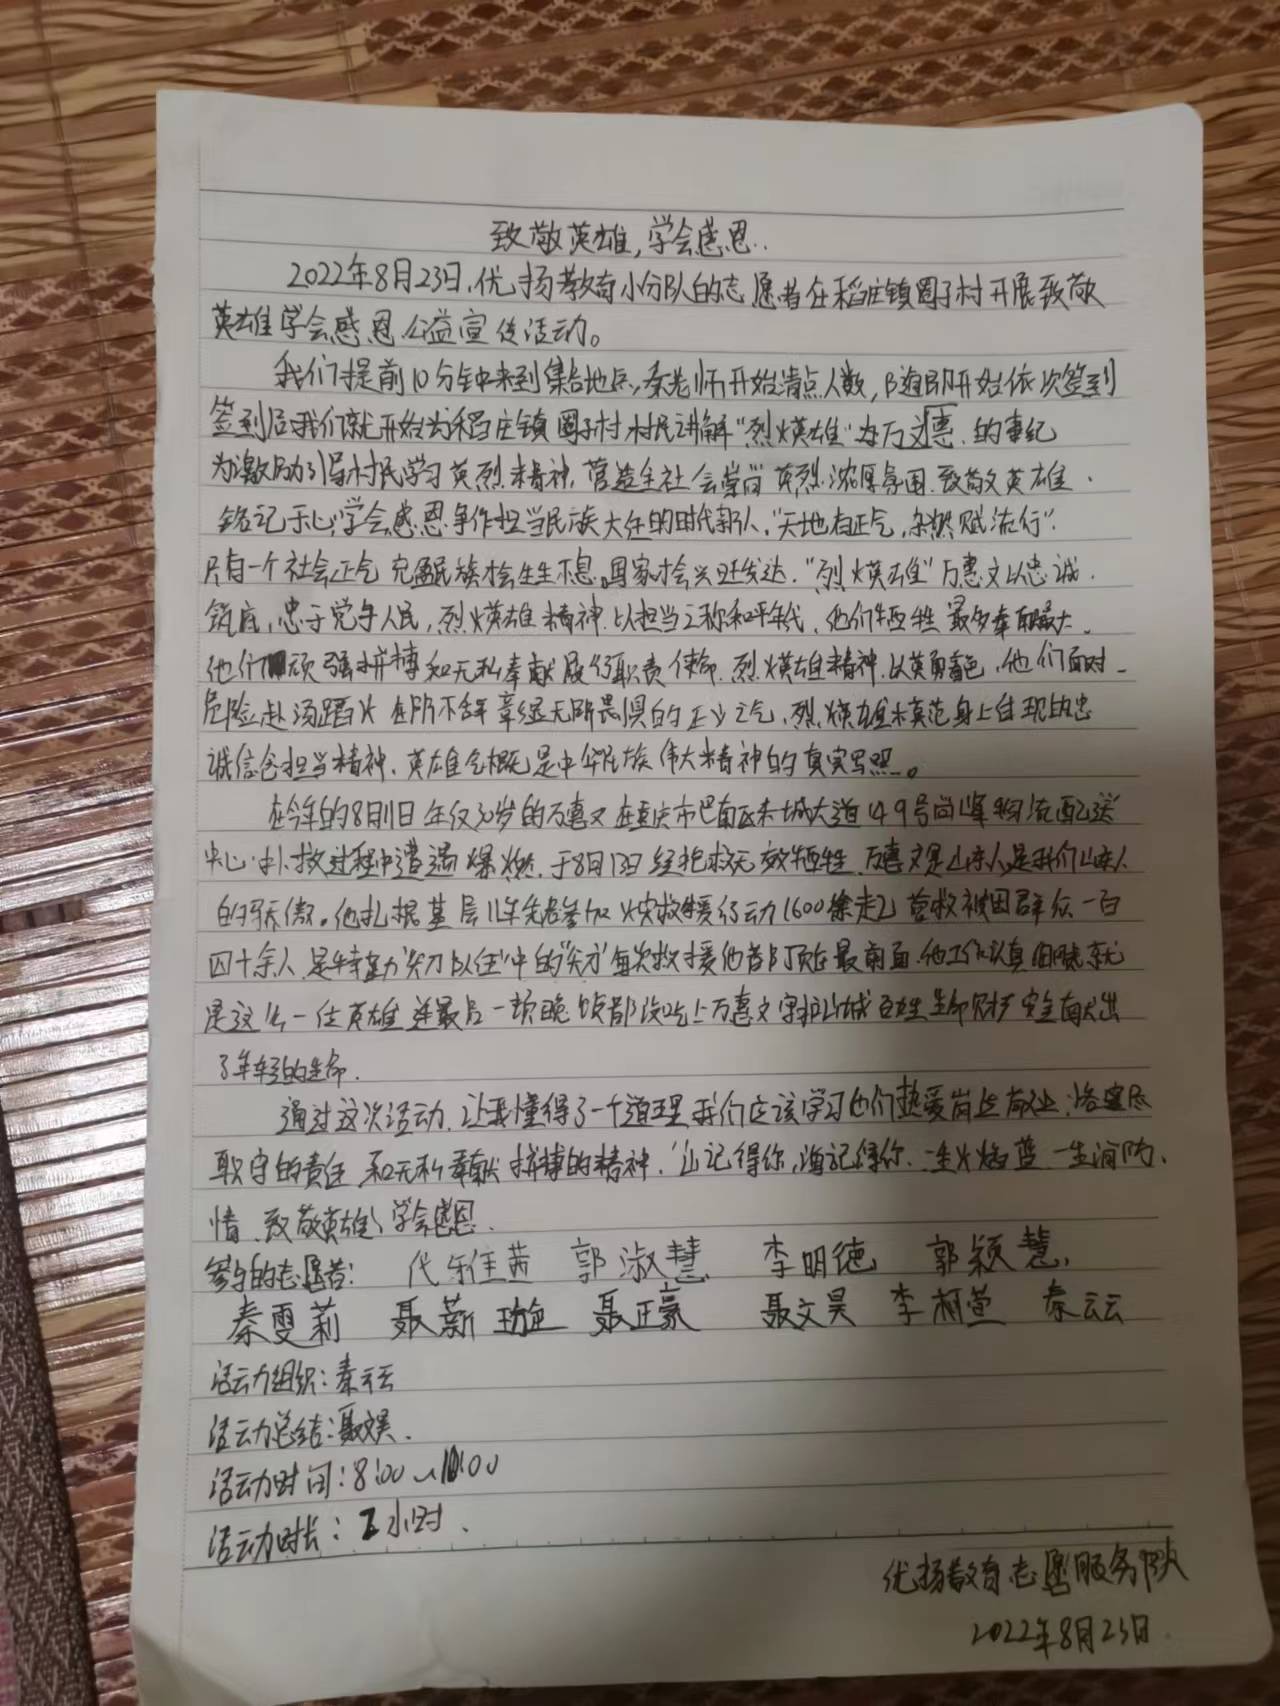 致敬英雄,学会感恩.
2022年8月23日,优扬教育小分队的志愿者在稻庄镇圈子村开展致敬
英雄学会感恩公益宣传活动。
我们提前10分钟来到集合地点,秦老师开始清点人数,随即开始依次签到
签到后我们就开始为稻庄镇圈子村村民讲解“烈火英雄”为万 惠 的事纪
为激励引导村民学习英烈精神,营造全社会崇尚英烈浓厚氛围.致敬英雄.
铭记于心,学会感恩争作担当民族大任的时代新人,“天地有正气,杂然赋流行”.
只有一个社会正气充盈民族才会生生不息。国家才会兴旺发达.“烈火英雄”万惠文以忠诚.
筑底,忠于党于人民,烈火英雄精神.以担当之称和平年代,他们牺牲最多奉献最大.
他们顽强拼搏和无私奉献履行职责使命.烈火英雄精神.以英勇着色.他们面对
危险赴汤蹈火在所不辞 无所畏惧的正义之气,烈火英雄模范身上自现的忠
诚信念担当精神,英雄气概是中华民族伟大精神的真实写照。
在今年的8月11日年仅30岁的万惠文在重庆市巴南区 城大道149号尚峰物流配送
中心扑救过程中遭遇爆燃.于8月13日经抢救无效牺牲.万惠文是山东人是我们山东人
的骄傲。他扎根基层11年先后参加火灾救援行动1600余起营救被困群众一百
四十余人.是特勤“尖刀队伍”中的“尖刀”每次救援他都顶在最前面.他工作认真 就
是这么一位英雄连最后一顿晚饭都没吃上万惠文守护山城百姓生命财产安全献出
了年轻的生命.
通过这次活动,让我懂得了一个道理我们应该学习他们热爱岗位敬业.恪尽
职守的责任和无私奉献拼搏的精神.“山记得你,海记得你.一生火焰蓝一生消防
情.致敬英雄,学会感恩.
参与的志愿者: 代 佳茜 郭淑慧 李明德 郭颖慧
秦雯莉 聂薪璇 聂正豪 聂文昊 李柯萱 秦云云
活动组织:秦云云
活动总结:聂文昊.
活动时间:8:00~10:00
活动时长:2小时.
优扬教育志愿服务队
2022年8月23日